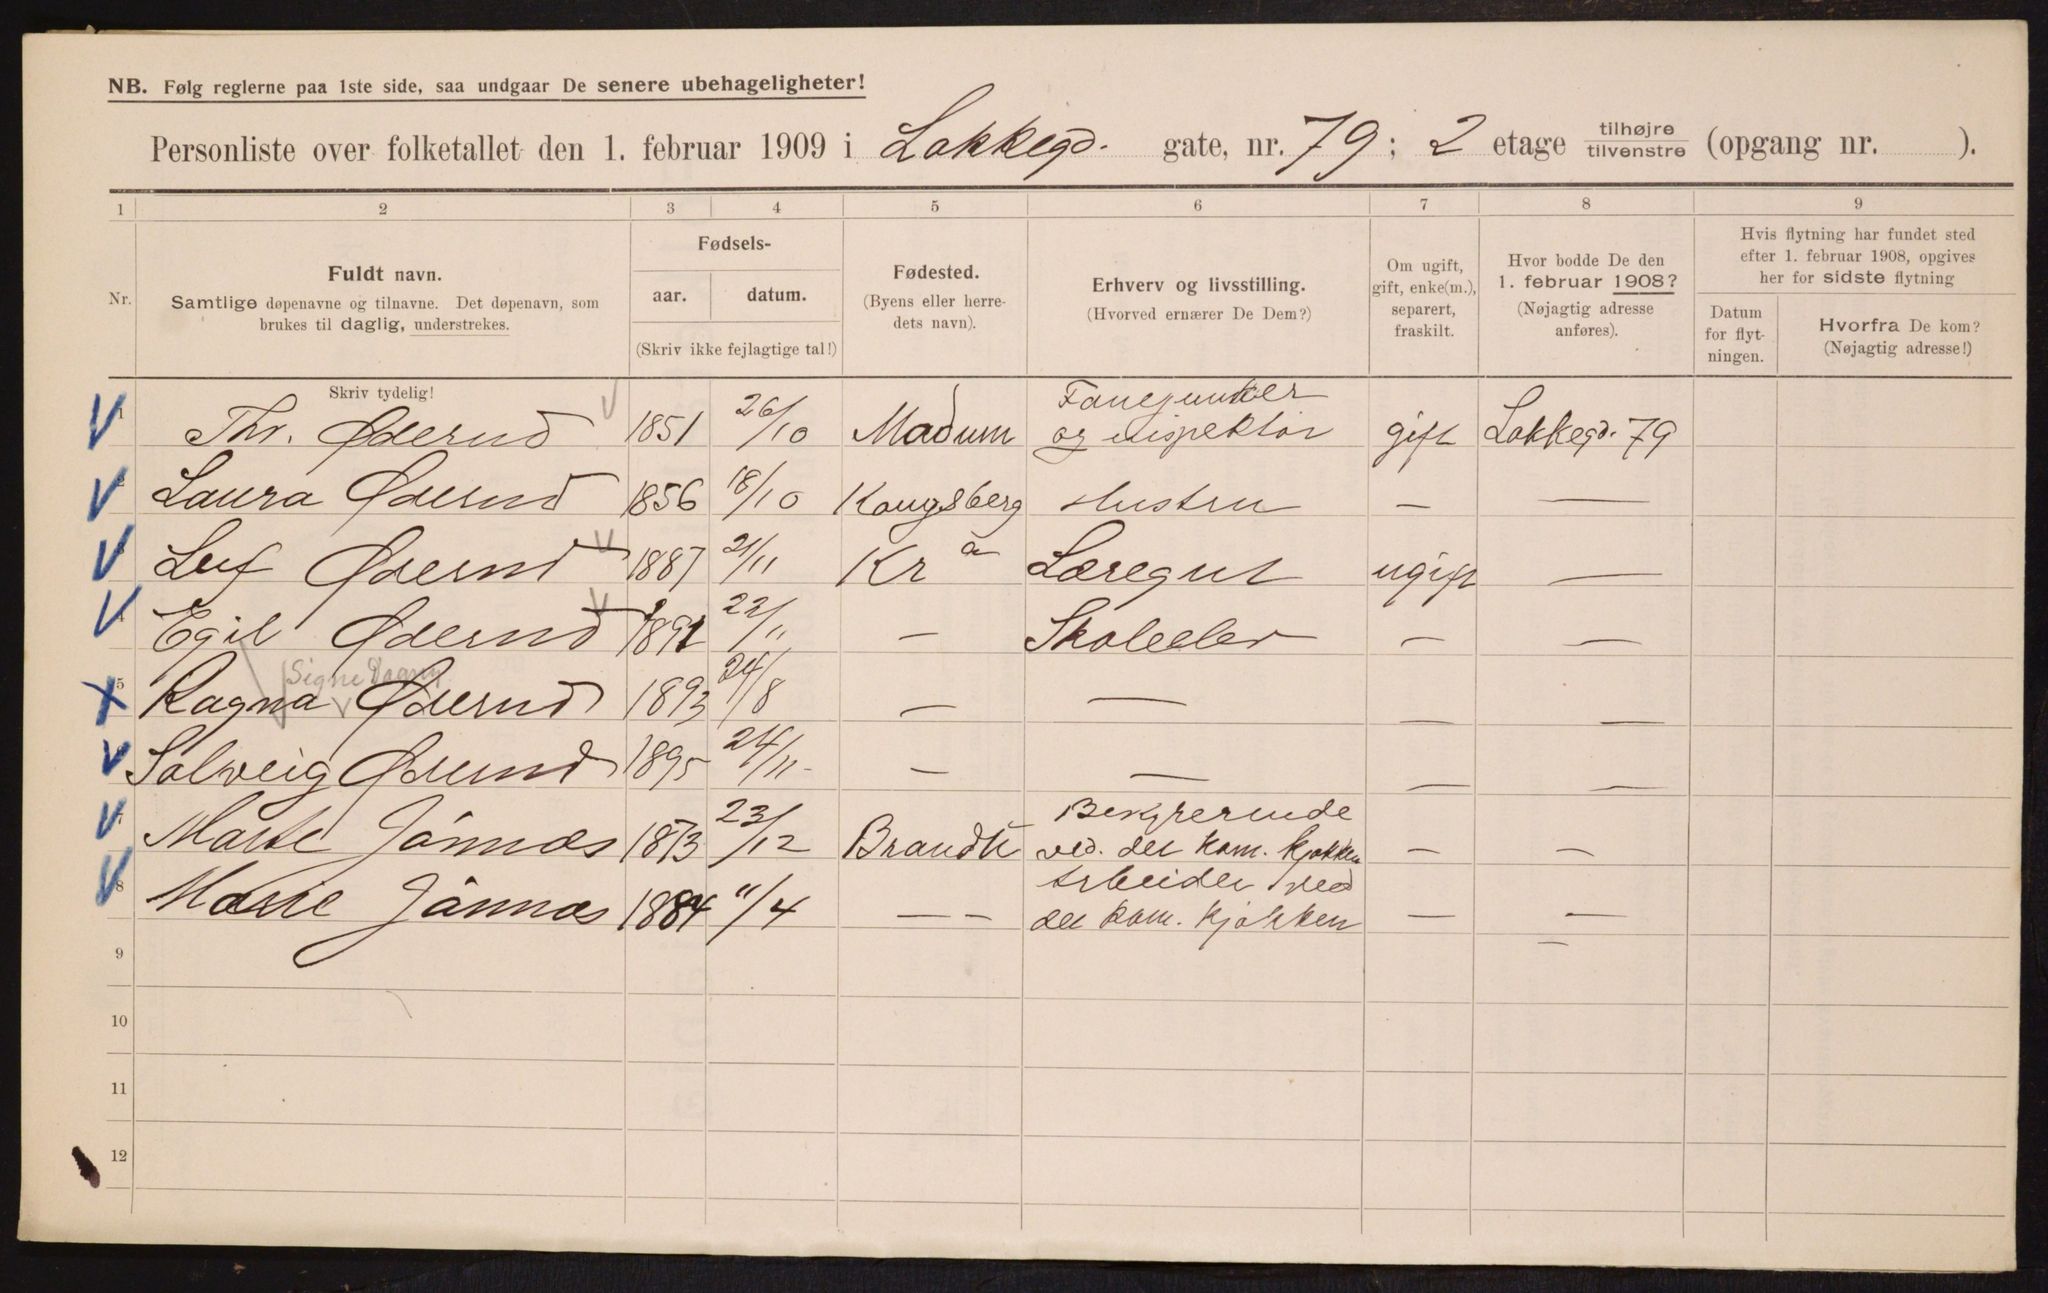 NB. Følg reglerne paa 1ste side, saa undgaar De senere ubehageligheter!
Personliste over folketallet den 1. februar 1909 i Lakkegd. gate, nr. 79; 2 etage tilhøjre tilvenstre (opgang nr. ).
1 2 3 4 5 6 7 8 9
Nr. Fuldt navn. Samtlige døpenavne og tilnavne. Det døpenavn, som brukes til daglig, understrekes.
Fødsels- aar. datum. (Skriv ikke fejlagtige tal!)
Fødested. (Byens eller herredets navn).
Erhverv og livsstilling. (Hvorved ernærer De Dem?)
Om ugift, gift, enke(m.), separert, fraskilt.
Hvor bodde De den 1. februar 1908? (Nøjagtig adresse anføres).
Hvis flytning har fundet sted efter 1. februar 1908, opgives her for sidste flytning
Datum for flytningen. Hvorfra De kom? (Nøjagtig adresse!)
Skriv tydelig!
1 Thv. Øderud 1851 26/10 Modum Fanejunker og inspektør gift Lakkegd. 79
2 Laura Øderud 1856 18/10 Kongsberg Hustru — —
3 Leif Øderud 1887 21/11 Kr a Læregut ugift —
4 Egil Øderud 1891 23/11 — Skoleelev — —
Signe Dagny
5 Ragna Øderud 1893 24/8 — — — —
Solveig Øderud 1895 24/11 — — — —
7 Marte Jønnæs 1873 23/12 Brandbu Bestyrerinde ved. det kom. kjøkken — —
8 Marie Jønnæs 1884 11/4 — — Arbeider ved det kom. kjøkken — —
9
10
11
12